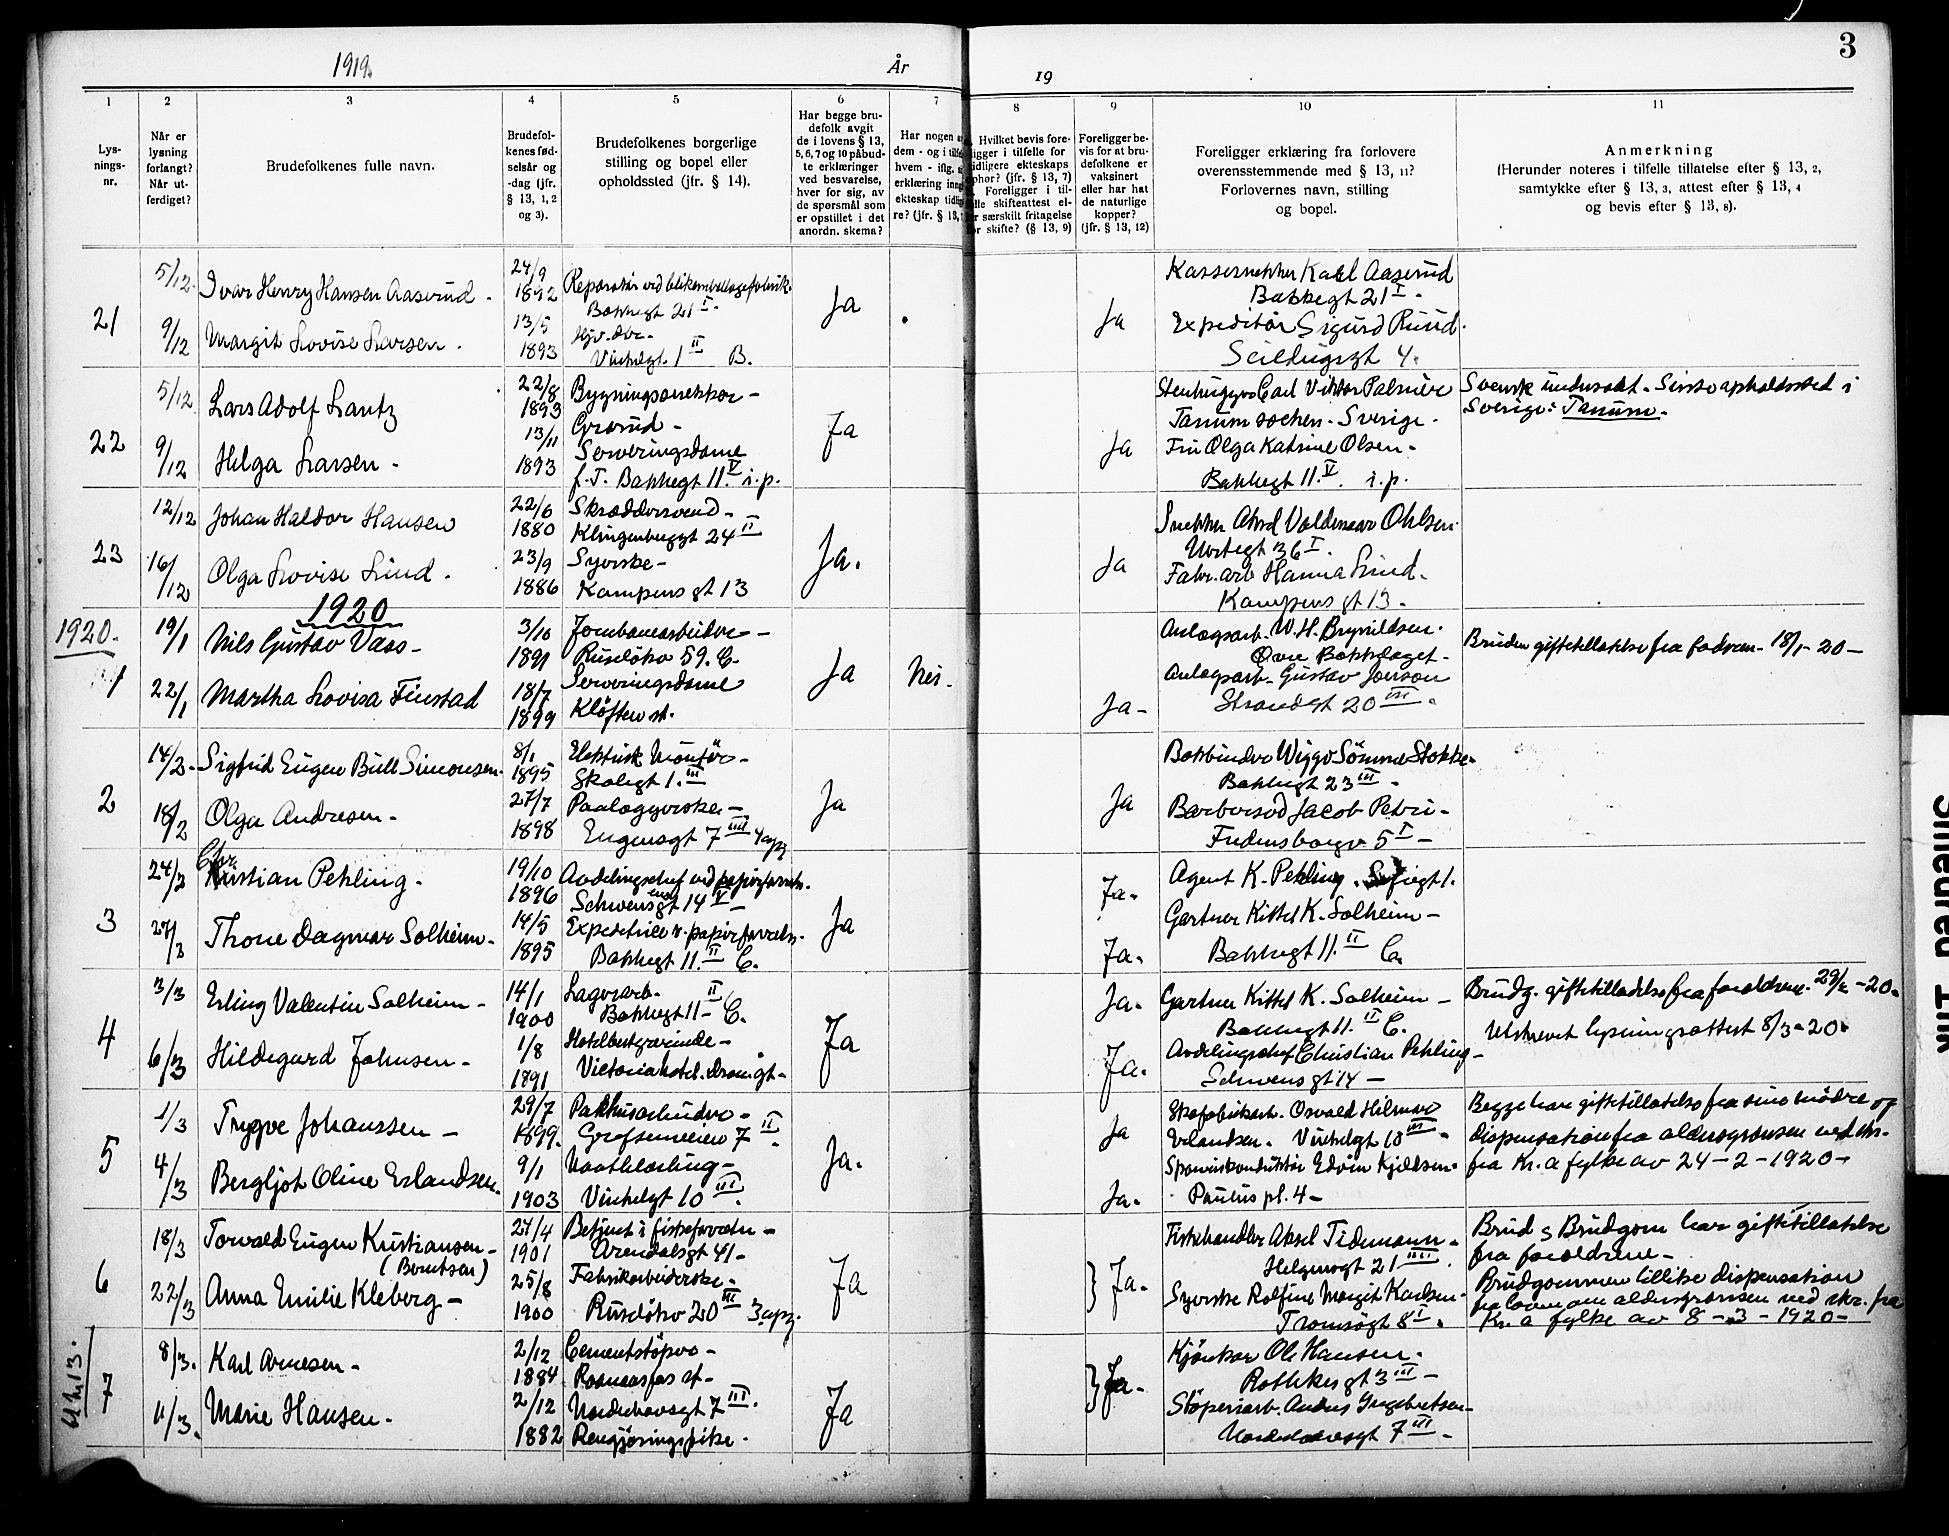 3
1919.
År
19
1
2
3
4
5
6
7
8
9
10
11
Lys-
nings-
nr.
Når er
lysning
forlangt?
Når ut-
ferdiget?
Brudefolkenes fulle navn.
Brudefol-
kenes fød-
selsår og
-dag (jfr.
§ 13, 1, 2
og 3).
Brudefolkenes borgerlige
stilling og bopel eller
opholdssted (jfr. § 14).
Har begge bru-
defolk avgit
de i lovens § 13,
5, 6, 7 og 10 påbud-
te erklæringer
ved besvarelse,
hver for sig, av
de spørsmål som
er opstillet i det
anordn. skema?
Har nogen a
dem - og i tilfe
hvem - iflg.
erklæring inng
ekteskap tidlig
re? (jfr. § 13,
Hvilket bevis fore-
ligger i tilfelle for
tidligere ekteskaps
ophør? (jfr. § 13, 7)
Foreligger i til-
felle skifteattest el-
er særskilt fritagelse
for skifte? (§ 13, 9)
Foreligger be-
vis for at bru-
defolkene er
vaksinert
eller har hat
de naturlige
kopper?
(jfr. § 13, 12)
Foreligger erklæring fra forlovere
overensstemmende med § 13, 11?
Forlovernes navn, stilling
og bopel.
Anmerkning
(Herunder noteres i tilfelle tillatelse efter § 13, 2,
samtykke efter § 13, 3, attest efter § 13, 4
og bevis efter § 13, 8).
21
5/12.
9/12
Ivar Henry Hansen Aaserud.
Margit Lovise Larsen.
24/9
1892
13/5
1893
Reparatør ved blikemballagefabrik.
Bakkegt 21 I.
Hjv. dtr.
Vinkelgt. 1 II B.
Ja
Ja
Kassesnekker Karl Aaserud
Bakkegt 21 I.
Expeditør Sigurd Ruud.
Seildugsgt 4.
22
5/12
9/12
Lars Adolf Lantz
Helga Larsen.
22/8
1893
13/11
1893
Bygningssnekker -
Grorud -
Serveringsdame
f. T. Bakkegt 11. V i.p.
Ja
Ja
Stenhugger Carl Viktor Palmér
Tanum sochen. Sverige.
Fru Olga Katrine Olsen.
Bakkegt 11. V. i.p.
Svensk undersaat. Siste opholdssted i
Sverige: Tanum.
23
12/12
16/12
Johan Haldor Hansen
Olga Lovise Lind.
22/6
1880
23/9
1886
Skræddersvend -
Klingenberggt 24 II
Syerske -
Kampens gt 13
Ja.
Ja
Snekker Valdemar Ohlsen
Urtegt 36 I.
Fabr. arb Hanna Lind.
Kampens gt 13.
1920
1920.
1
19/1
22/1
Nils Gustav Vass -
Martha Lovisa Finstad
3/10
1891
18/7
1899
Jernbanearbeider -
Ruseløkv 59. C.
Serveringsdame
Kløften st.
Ja
Nei.
Ja -
Anlægsarb. W. H. Brynildsen.
Øvre Bakkelaget -
Anlægsarb. Gustav Jonson
Strandgt 20 III.
Bruden giftetilladelse fra faderen. 18/1 - 20 -
2
14/2.
18/2
Sigfrid Eugen Bull Simonsen.
Olga Andresen.
8/1
1895
27/7
1898
Elektrisk Montør -
Skolegt 1. III
Paalæggerske -
Eugensgt 7 III
Ja
Ja
Bokbinder Wiggo Sömme Stokke.
Bakkegt 23 III -
Barbersvd Jacob Petri -
Fredensborgv 5 I -
3
24/2
27/2
Chr.
Kristian Pehling.
Thone Dagmar Solheim.
19/10
1896
14/5
1895
Avdelingschef ved papirforretn.
Schwensensgt 14 V -
Expeditrice v. papirforretn.
Bakkegt 11. II C.
Ja
Ja.
Ja.
Agent K. Pehling. Sofiegt 1.
Gartner Kittel K. Solheim -
Bakkegt 11. II C.
4
3/3
6/3
Erling Valentin Solheim -
Hildegard Johnsen -
14/1
1900
1/8
1891
Lagerarb.
Bakkegt 11 II - C.
Hotelbestyrerinde -
Victoria hotel. Dron.gt.
Ja
Ja.
Ja.
Gartner Kittel K. Solheim -
Bakkegt 11. II C.
Avdelingschef Christian Pehling -
Schwensgt 14 -
Brudg. giftetilladelse fra forældrene. 29/2 - 20.
Utskrevet lysningsattest 8/3 - 20.
5
1/3
4/3
Trygve Johanssen -
Bergljot Oline Erlandsen.
29/7
1899.
9/1
1903
Pakhusarbeider -
Grefsenveien 7 II.
Vinkelgt 10 III.
Ja.
Ja
Ja.
Skofabrikarb. Osvald Hilmar
Erlandsen. Vinkelgt 10 III.
Sporveiskonduktør Edvin Kjeldsen.
Paulus pl. 4 -
Begge har giftetilladelse fra sine mødre og
dispensation fra aldersgrænsen ved skr.
fra Kr.a fylke av 24 - 2 - 1920 -
6
18/3
22/3
Torvald Eugen Kristiansen -
(Berntsen)
Anna Emilie Kleberg -
27/4
1901
25/8
1900
Betjent i fiskeforretn -
Arendalsgt 41 -
Fabrikarbeiderske -
Ruseløkv 20 III 3 opg.
Ja
Ja.
Fiskehandler Aksel Tidemann.
Helgensgt 21 III.
Syerske Rolfine Margit Karlsen.
Tromsøgt 8 I.
Brud & Brudgom har giftetilladelse
fra forældrene -
Brudgommen tillike dispensation
fra loven om aldersgrænsen ved skr. fra
Kr.a fylke av 8 - 3 - 1920 -
7
8/3.
11/3.
Karl Arnesen -
Marie Hansen.
2/12
1884
2/12
1882
Cementstøper -
Roanaasfos st -
Nordkapsgt 7 III.
Rengjøringspike.
Ja
Ja.
Kjørekar Ole Hansen.
Rathkes gt 3 III -
Støperiarb. Anders Ingebretsen -
7 III -